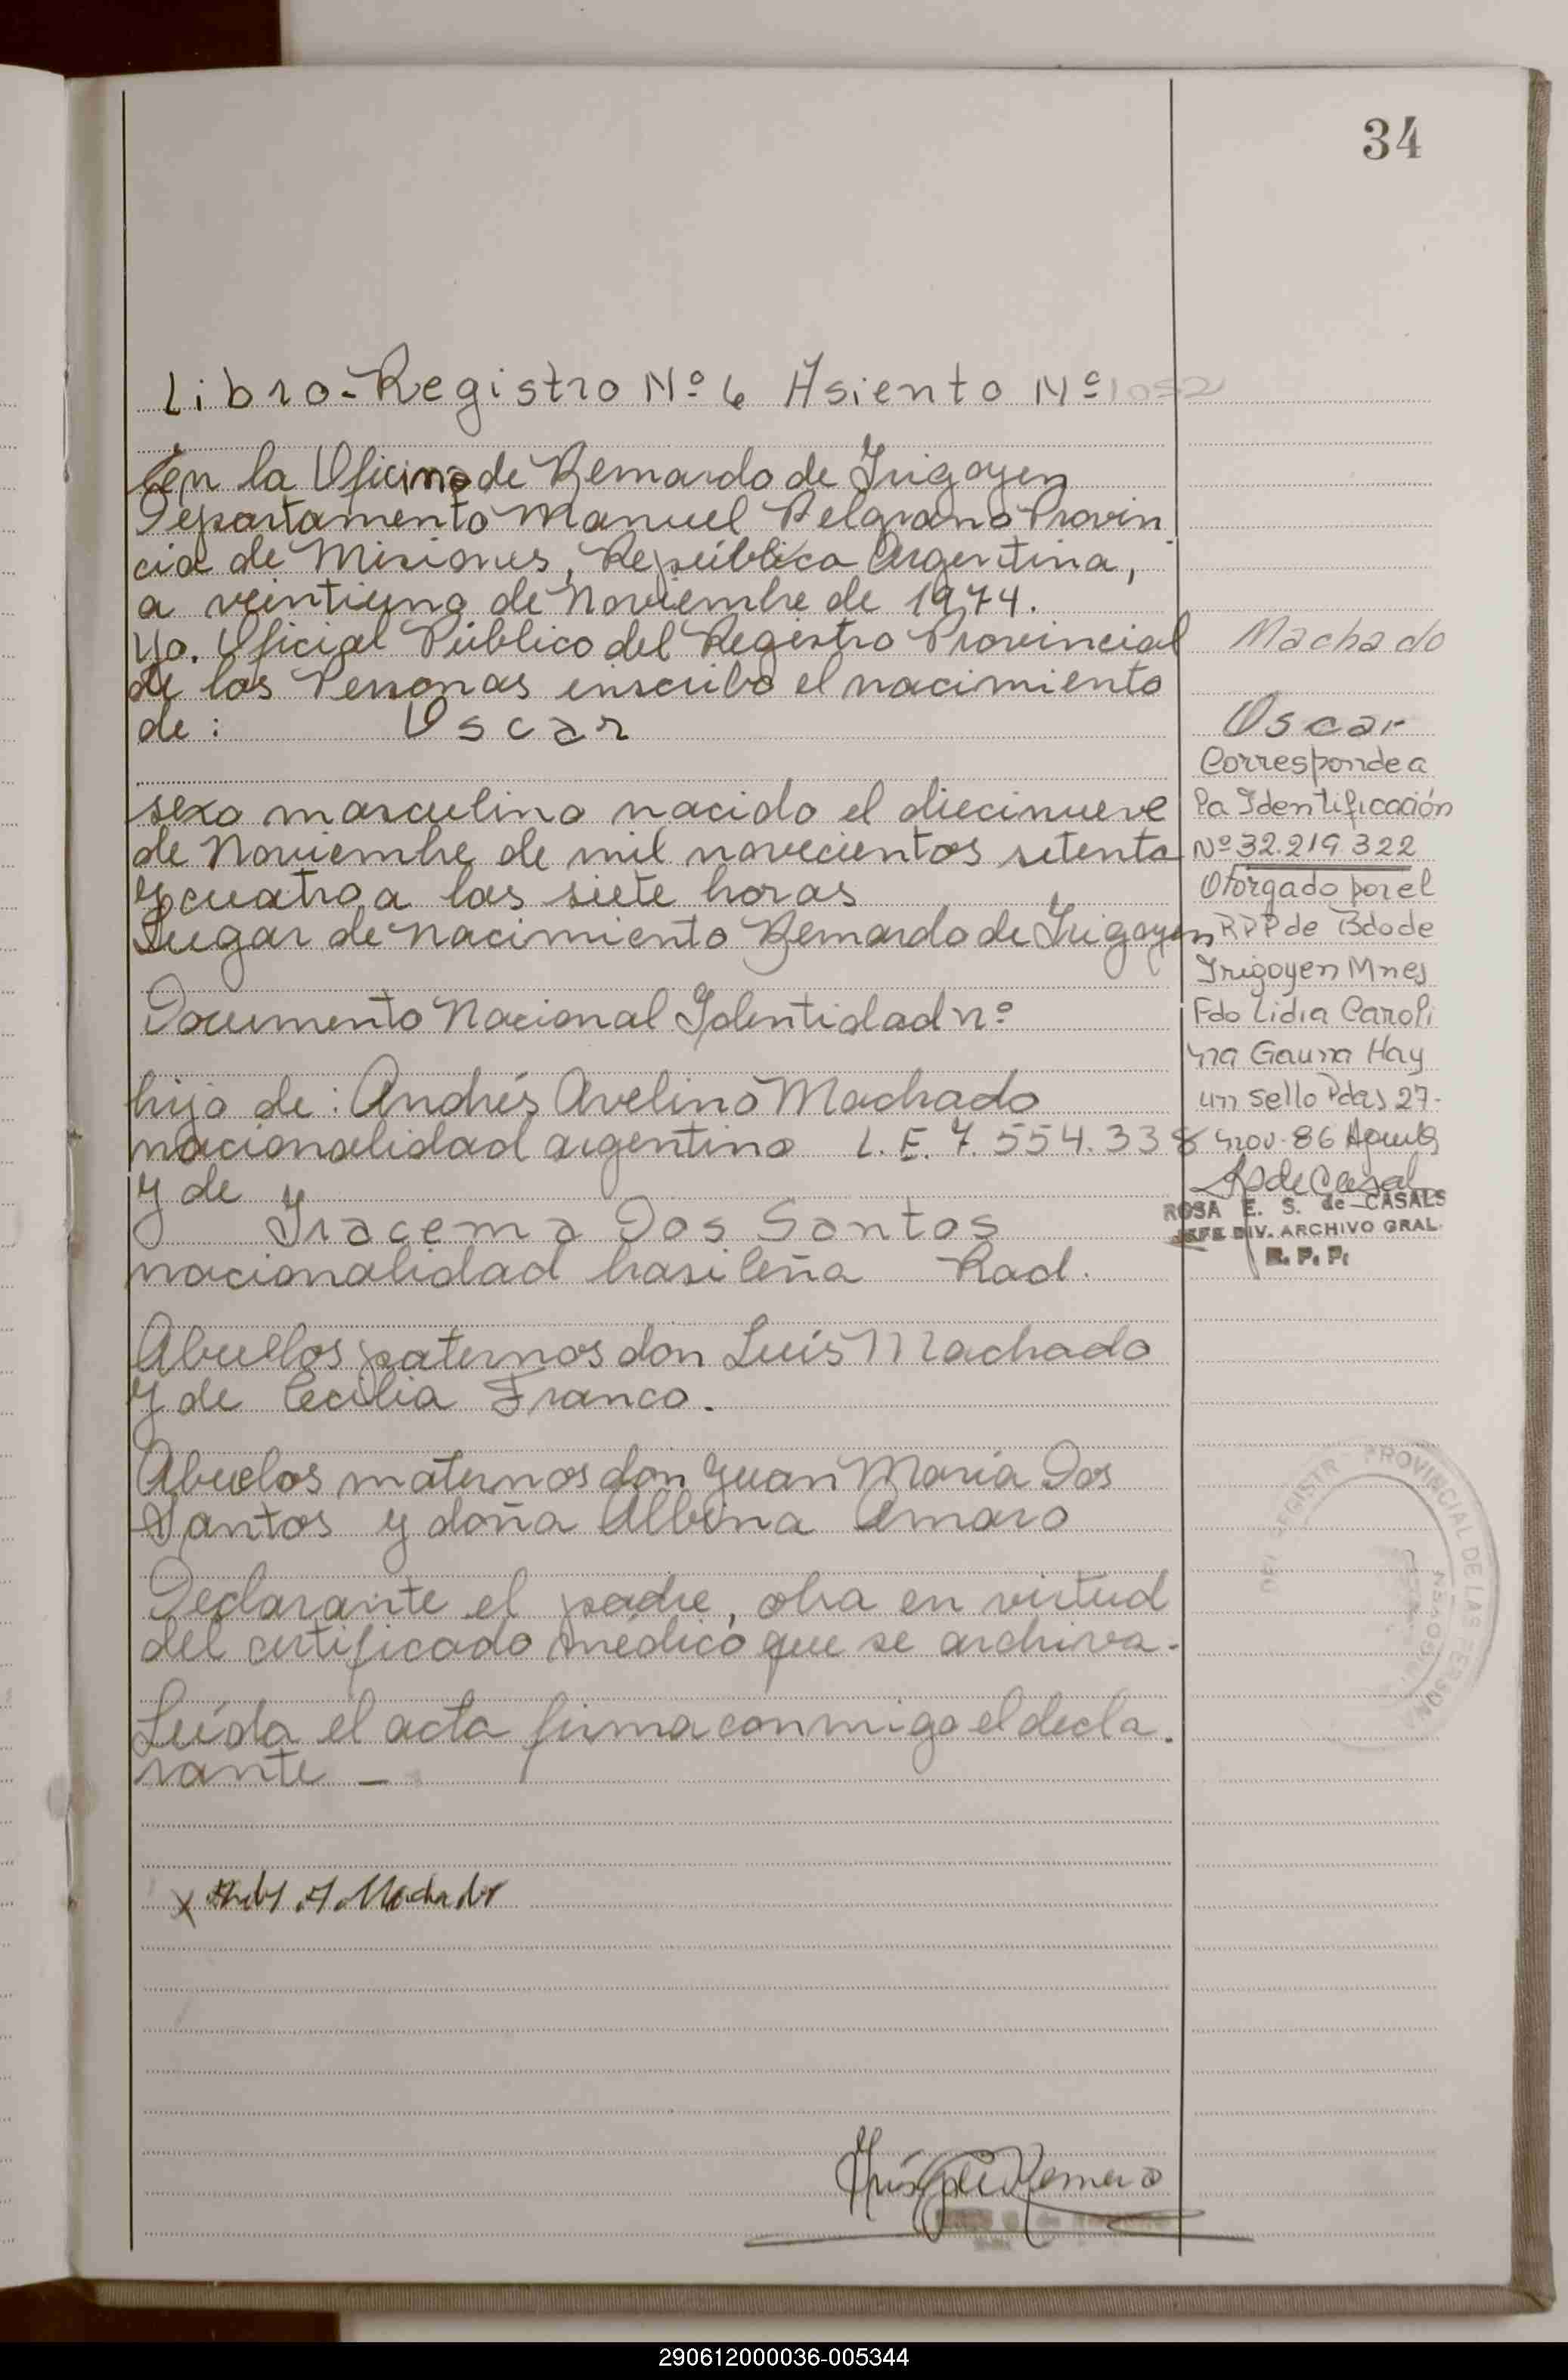 34
Libro-Registro Nº 6 Asiento Nº 1052
En la Oficina de Bernardo de Irigoyen
Departamento Manuel Belgrano Provin
cia de Misiones, República Argentina,
a veintiuno de Noviembre de 1974.
Yo. Oficial Público del Registro Provincial
de las Personas inscribo el nacimiento
de: Oscar
sexo masculino nacido el diecinueve
de Noviembre de mil novecientos setenta
y cuatro a las siete horas
Lugar de nacimiento Bernardo de Irigoyen
Documento Nacional Identidad nº
hijo de: Andrés Avelino Machado
nacionalidad argentino L.E. 7.554.338
y de
Iracema Dos Santos
nacionalidad brasileña Rad.
Abuelos paternos don Luis Machado
y de Cecilia Franco.
Abuelos maternos don Juan Maria Dos
Santos y doña Albina Amaro
Declarante el padre, obra en virtud
del certificado médico que se archiva.
Leída el acta firma conmigo el decla
rante -
x A. Machado
Romero
Machado
Oscar
Corresponde a
la Identificación
Nº 32.219.322
Otorgado por el
RPP de Bdo de
Irigoyen Mnes
Fdo Lidia Caroli
na Gauna Hay
un sello Pdas 27-
nov-86
R de Casals
ROSA E. S. de CASALS
JEFE DIV. ARCHIVO GRAL.
R. P. P.
DEL REGISTR PROVINCIAL DE LAS PERSONA
290612000036-005344